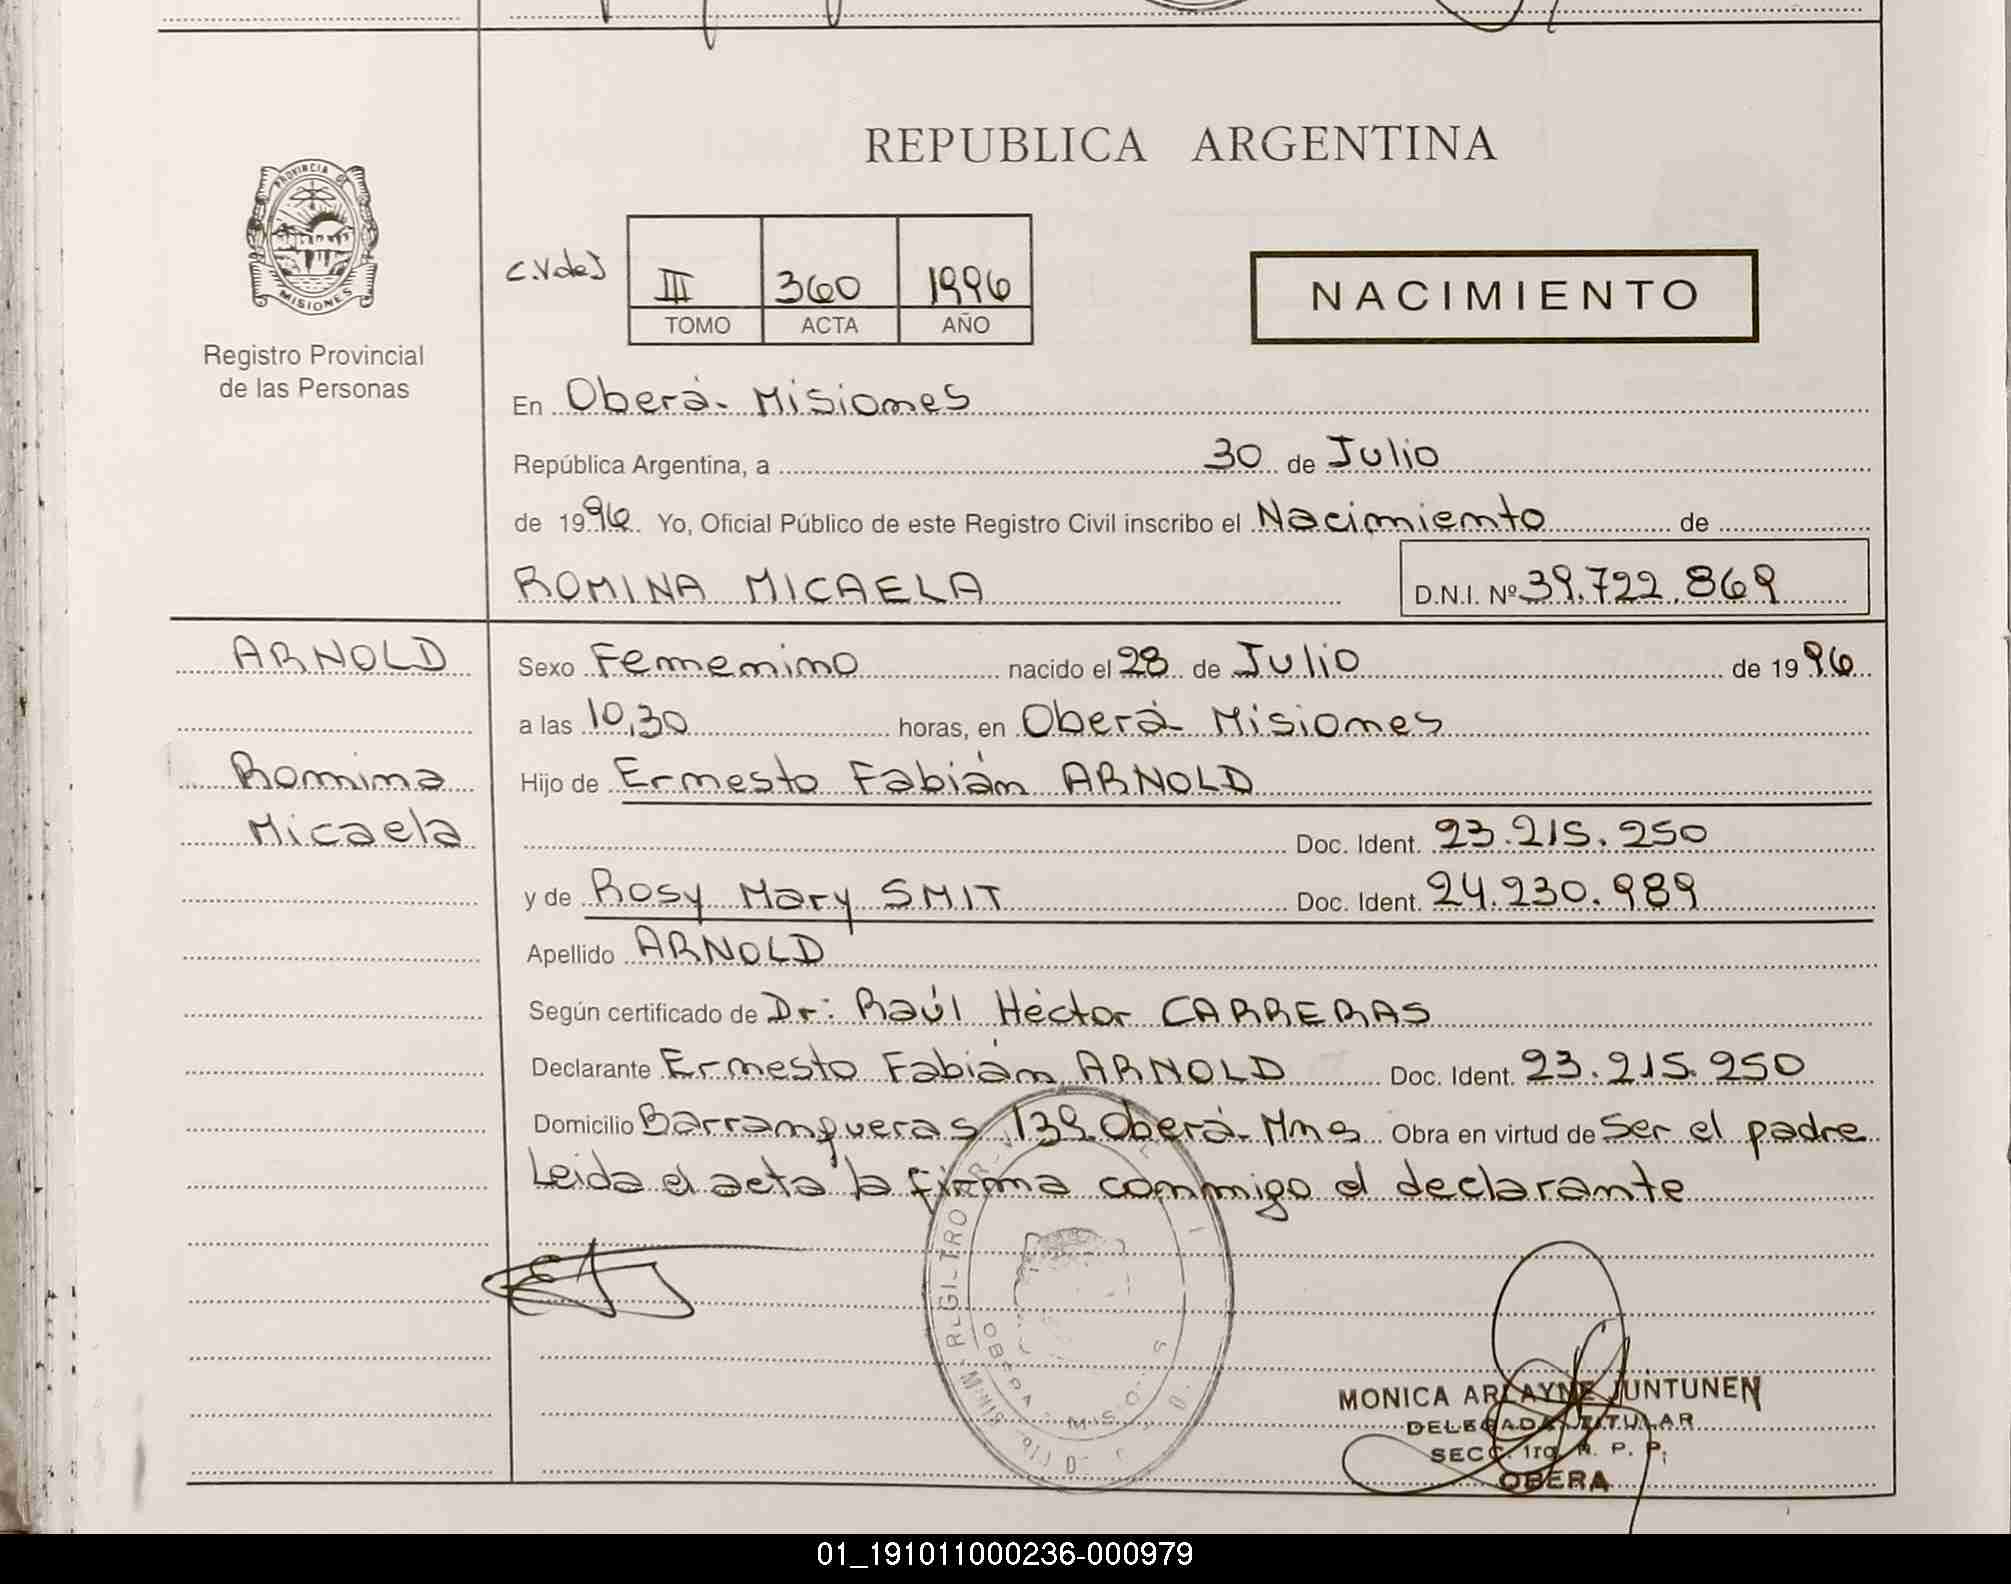 PROVINCIA DE
MISIONES
Registro Provincial
de las Personas
REPUBLICA ARGENTINA
C.V de J
III 360 1996
TOMO ACTA AÑO
NACIMIENTO
En Oberá - Misiones
República Argentina, a 30 de Julio
de 1996 Yo, Oficial Público de este Registro Civil inscribo el Nacimiento de
ROMINA MICAELA D.N.I. Nº 39.722.869
ARNOLD
Romina
Micaela
Sexo Femenino nacido el 28 de Julio de 1996
a las 10,30 horas, en Oberá - Misiones
Hijo de Ernesto Fabián ARNOLD
Doc. Ident. 23.215.250
y de Rosy Mary SMIT Doc. Ident. 24.230.989
Apellido ARNOLD
Según certificado de Dr: Raúl Héctor CARRERAS
Declarante Ernesto Fabián ARNOLD Doc. Ident. 23.215.250
Domicilio Barranqueras 139 Oberá - Mnes Obra en virtud de Ser el padre
Leida el acta la firma conmigo el declarante
OBERA
MONICA ARLAYNE JUNTUNEN
DELEGADA TITULAR
SECC. 1ra R. P. P.
OBERA
01_191011000236-000979